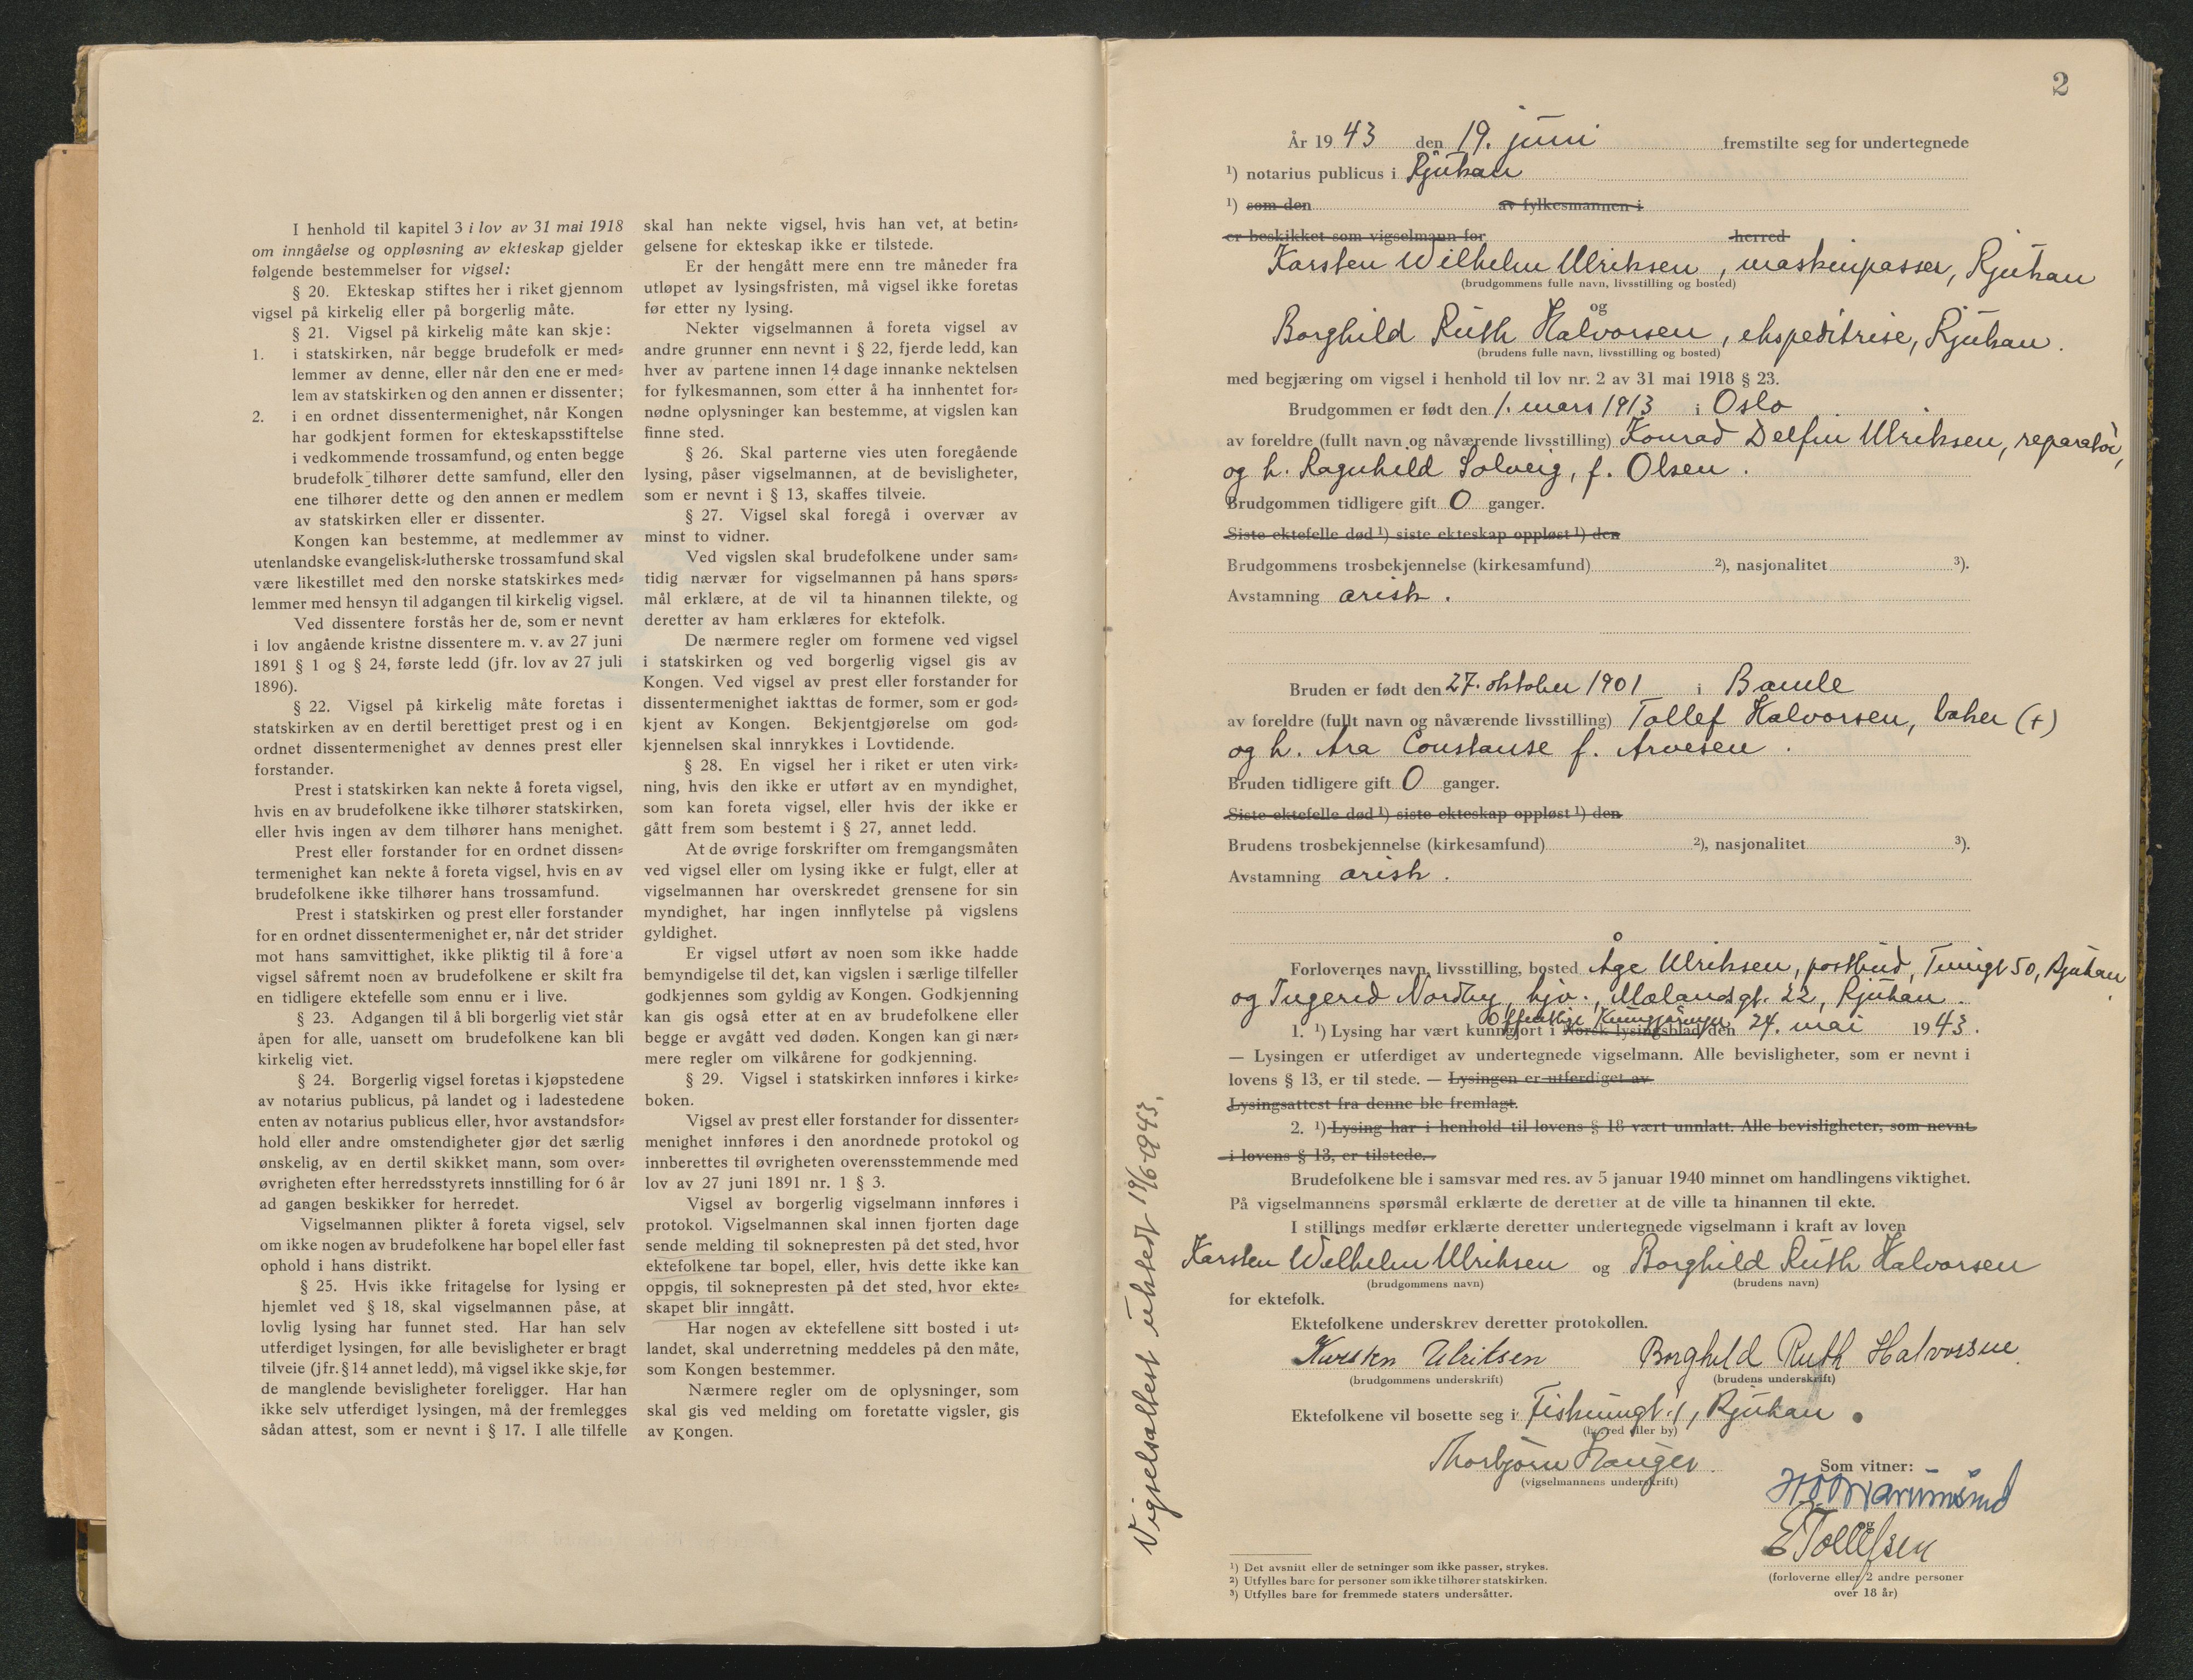 I henhold til kapitel 3 i lov av 31 mai 1918
om inngåelse og oppløsning av ekteskap gjelder
følgende bestemmelser for vigsel:
§ 20. Ekteskap stiftes her i riket gjennom
vigsel på kirkelig eller på borgerlig måte.
§ 21. Vigsel på kirkelig måte kan skje:
1. i statskirken, når begge brudefolk er med=
lemmer av denne, eller når den ene er med=
lem av statskirken og den annen er dissenter;
2. i en ordnet dissentermenighet, når Kongen
har godkjent formen for ekteskapsstiftelse
i vedkommende trossamfund, og enten begge
brudefolk tilhører dette samfund, eller den
ene tilhører dette og den annen er medlem
av statskirken eller er dissenter.
Kongen kan bestemme, at medlemmer av
utenlandske evangelisk=lutherske trossamfund skal
være likestillet med den norske statskirkes med=
lemmer med hensyn til adgangen til kirkelig vigsel.
Ved dissentere forstås her de, som er nevnt
i lov angående kristne dissentere m. v. av 27 juni
1891 § 1 og § 24, første ledd (jfr. lov av 27 juli
1896).
§ 22. Vigsel på kirkelig måte foretas i
statskirken av en dertil berettiget prest og i en
ordnet dissentermenighet av dennes prest eller
forstander.
Prest i statskirken kan nekte å foreta vigsel,
hvis en av brudefolkene ikke tilhører statskirken,
eller hvis ingen av dem tilhører hans menighet.
Prest eller forstander for en ordnet dissen=
termenighet kan nekte å foreta vigsel, hvis en av
brudefolkene ikke tilhører hans trossamfund.
Prest i statskirken og prest eller forstander
for en ordnet dissentermenighet er, når det strider
mot hans samvittighet, ikke pliktig til å fore'a
vigsel såfremt noen av brudefolkene er skilt fra
en tidligere ektefelle som ennu er i live.
§ 23. Adgangen til å bli borgerlig viet står
åpen for alle, uansett om brudefolkene kan bli
kirkelig viet.
§ 24. Borgerlig vigsel foretas i kjøpstedene
av notarius publicus, på landet og i ladestedene
enten av notarius publicus eller, hvor avstandsfor=
hold eller andre omstendigheter gjør det særlig
ønskelig, av en dertil skikket mann, som over=
øvrigheten efter herredsstyrets innstilling for 6 år
ad gangen beskikker for herredet.
Vigselmannen plikter å foreta vigsel, selv
om ikke nogen av brudefolkene har bopel eller fast
ophold i hans distrikt.
§ 25. Hvis ikke fritagelse for lysing er
hjemlet ved § 18, skal vigselmannen påse, at
lovlig lysing har funnet sted. Har han selv
utferdiget lysingen, før alle bevisligheter er bragt
tilveie (jfr. § 14 annet ledd), må vigsel ikke skje, før
de manglende bevisligheter foreligger. Har han
ikke selv utferdiget lysingen, må der fremlegges
sådan attest, som er nevnt i § 17. I alle tilfelle
skal han nekte vigsel, hvis han vet, at betin=
gelsene for ekteskap ikke er tilstede.
Er der hengått mere enn tre måneder fra
utløpet av lysingsfristen, må vigsel ikke foretas
før etter ny lysing.
Nekter vigselmannen å foreta vigsel av
andre grunner enn nevnt i § 22, fjerde ledd, kan
hver av partene innen 14 dage innanke nektelsen
for fylkesmannen, som etter å ha innhentet for=
nødne oplysninger kan bestemme, at vigslen kan
finne sted.
§ 26. Skal parterne vies uten foregående
lysing, påser vigselmannen, at de bevisligheter,
som er nevnt i § 13, skaffes tilveie.
§ 27. Vigsel skal foregå i overvær av
minst to vidner.
Ved vigslen skal brudefolkene under sam=
tidig nærvær for vigselmannen på hans spørs=
mål erklære, at de vil ta hinannen tilekte, og
deretter av ham erklæres for ektefolk.
De nærmere regler om formene ved vigsel
i statskirken og ved borgerlig vigsel gis av
Kongen. Ved vigsel av prest eller forstander for
dissentermenighet iakttas de former, som er god=
kjent av Kongen. Bekjentgjørelse om god=
kjennelsen skal innrykkes i Lovtidende.
§ 28. En vigsel her i riket er uten virk=
ning, hvis den ikke er utført av en myndighet,
som kan foreta vigsel, eller hvis der ikke er
gått frem som bestemt i § 27, annet ledd.
At de øvrige forskrifter om fremgangsmåten
ved vigsel eller om lysing ikke er fulgt, eller at
vigselmannen har overskredet grensene for sin
myndighet, har ingen innflytelse på vigslens
gyldighet.
Er vigsel utført av noen som ikke hadde
bemyndigelse til det, kan vigslen i særlige tilfeller
godkjennes som gyldig av Kongen. Godkjenning
kan gis også etter at en av brudefolkene eller
begge er avgått ved døden. Kongen kan gi nær=
mere regler om vilkårene for godkjenning.
§ 29. Vigsel i statskirken innføres i kirke=
boken.
Vigsel av prest eller forstander for dissenter=
menighet innføres i den anordnede protokol og
innberettes til øvrigheten overensstemmende med
lov av 27 juni 1891 nr. 1 § 3.
Vigsel av borgerlig vigselmann innføres i
protokol. Vigselmannen skal innen fjorten dage
sende melding til soknepresten på det sted, hvor
ektefolkene tar bopel, eller, hvis dette ikke kan
oppgis, til soknepresten på det sted, hvor ekte=
skapet blir inngått.
Har nogen av ektefellene sitt bosted i ut=
landet, skal underretning meddeles på den måte,
som Kongen bestemmer.
Nærmere regler om de oplysninger, som
skal gis ved melding om foretatte vigsler, gis
av Kongen.
2
År 19 43 den 19. juni fremstilte seg for undertegnede
1) notarius publicus i Rjukan
1) som den av fylkesmannen i
er beskikket som vigselmann for herred
Karsten Wilhelm Ulriksen, maskinpasser, Rjukan
(brudgommens fulle navn, livsstilling og bosted)
og
Borghild Ruth Halvorsen, ekspeditrise, Rjukan.
(brudens fulle navn, livsstilling og bosted)
med begjæring om vigsel i henhold til lov nr. 2 av 31 mai 1918 § 23.
Brudgommen er født den 1. mars 1913 i Oslo
av foreldre (fullt navn og nåværende livsstilling) Konrad Delfin Ulriksen, reparatör,
og h. Ragnhild Solveig, f. Olsen.
Brudgommen tidligere gift 0 ganger.
Siste ektefelle død 1) siste ekteskap oppløst 1) den
Brudgommens trosbekjennelse (kirkesamfund) 2), nasjonalitet 3).
Avstamning arisk.
Bruden er født den 27. oktober 1901 i Bamle
av foreldre (fullt navn og nåværende livsstilling) Tollef Halvorsen, baker (+)
og h. Ara Constanse f. Arvesen.
Bruden tidligere gift 0 ganger.
Siste ektefelle død 1) siste ekteskap oppløst 1) den
Brudens trosbekjennelse (kirkesamfund) 2), nasjonalitet 3).
Avstamning arisk.
Forlovernes navn, livsstilling, bosted Åge Ulriksen, postbud, Tinngt 50, Rjukan
og Ingerid Nordby, hjv., Mælandsgt. 22, Rjukan.
Offentlige Kunngjøringer
1. 1) Lysing har vært kunngjort i Norsk lysingsblad den 24. mai 1943.
— Lysingen er utferdiget av undertegnede vigselmann. Alle bevisligheter, som er nevnt i
lovens § 13, er til stede. — Lysingen er utferdiget av
Lysingsattest fra denne ble fremlagt.
2. 1) Lysing har i henhold til lovens § 18 vært unnlatt. Alle bevisligheter, som nevnt
i lovens § 13, er tilstede.
Brudefolkene ble i samsvar med res. av 5 januar 1940 minnet om handlingens viktighet.
På vigselmannens spørsmål erklærte de deretter at de ville ta hinannen til ekte.
I stillings medfør erklærte deretter undertegnede vigselmann i kraft av loven
Karsten Wilhelm Ulriksen og Borghild Ruth Halvorsen
(brudgommens navn) (brudens navn)
for ektefolk.
Ektefolkene underskrev deretter protokollen.
Karsten Ulriksen Borghild Ruth Halvorsen
(brudgommens underskrift) (brudens underskrift)
Ektefolkene vil bosette seg i , Rjukan.
(herred eller by)
Thorbjørn Hauger.
(vigselmannens underskrift)
Som vitner:
og
E Tollefsen
(forloverne eller 2 andre personer
over 18 år)
1) Det avsnitt eller de setninger som ikke passer, strykes.
2) Utfylles bare for personer som ikke tilhører statskirken.
3) Utfylles bare for fremmede staters undersåtter.
Vigselsattest utstedt 19/6-1943.